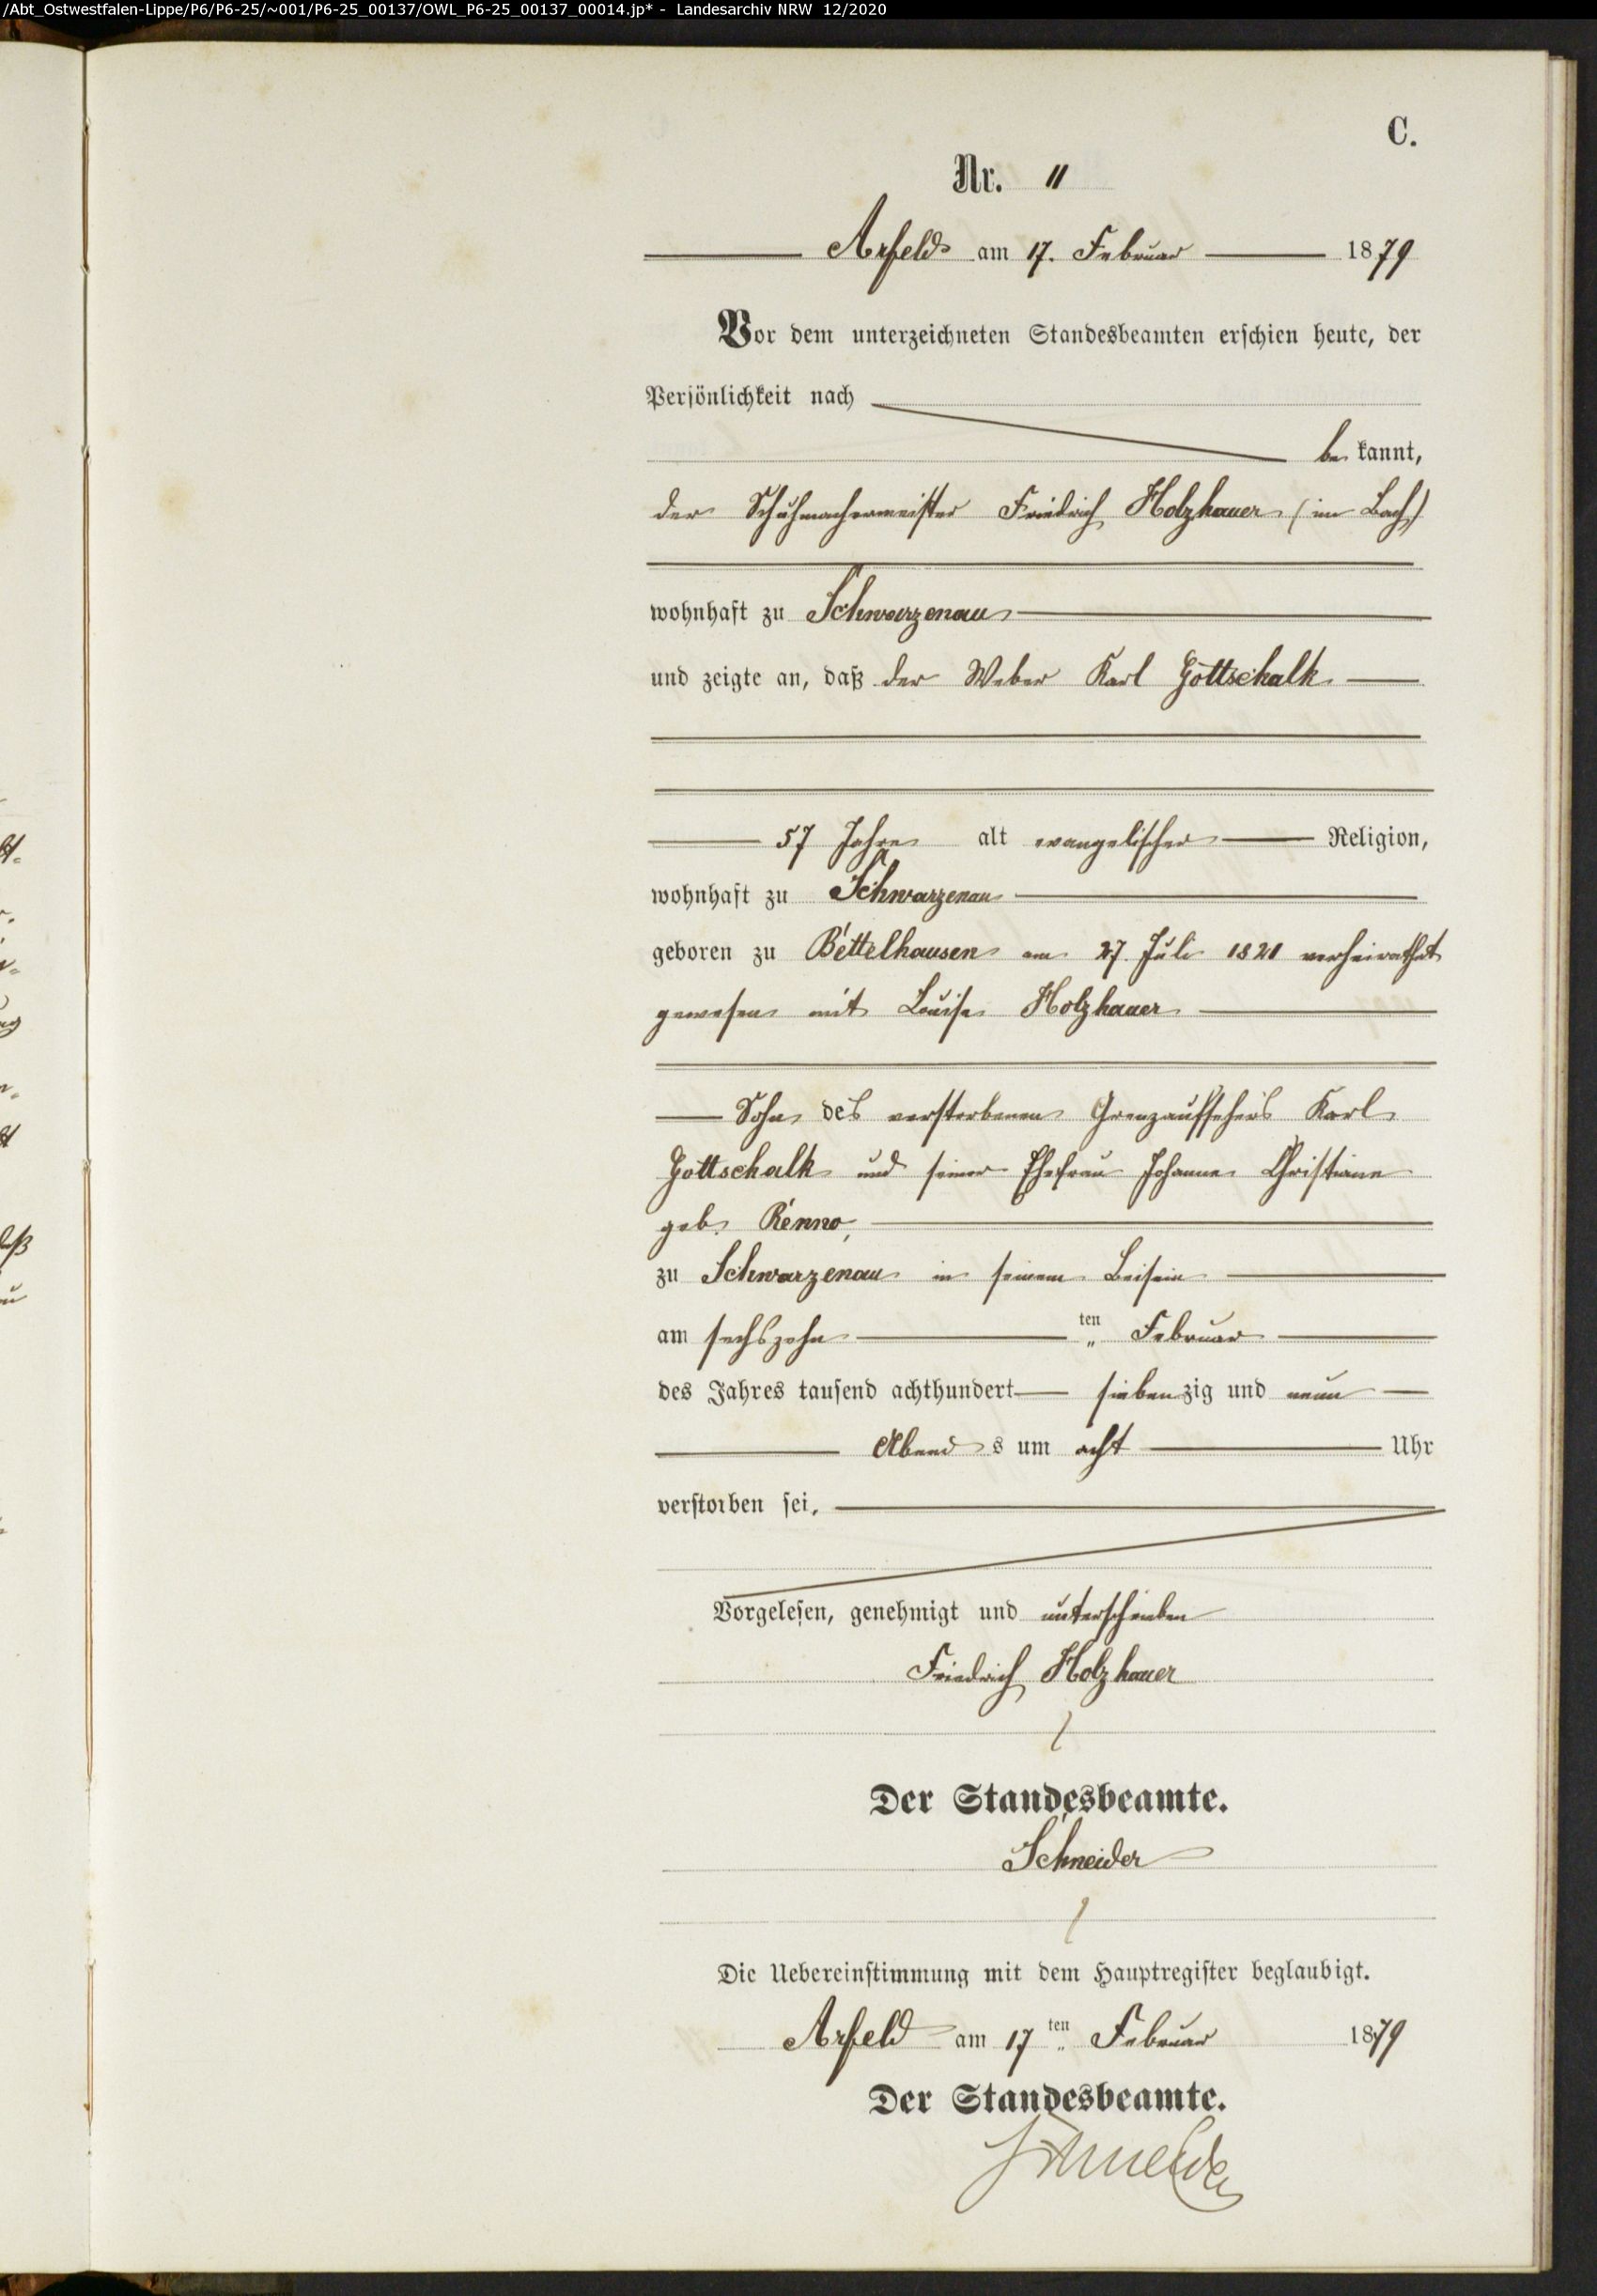 /Abt_Ostwestfalen-Lippe/P6/P6-25/~001/P6-25_00137/OWL_P6-25_00137_00014.jp* - Landesarchiv NRW 12/2020
C.
Nr. 11
Arfeld am 17. Februar 1879
Vor dem unterzeichneten Standesbeamten erschien heute, der
Persönlichkeit nach
be kannt,
der Schuhmachermeister Friedrich Holzhauer (im Bach)
wohnhaft zu Schwarzenau
und zeigte an, daß der Weber Karl Gottschalk
57 Jahre alt evangelischer Religion,
wohnhaft zu Schwarzenau
geboren zu Bettelhausen am 27. Juli 1821 verheirathet
gewesen mit Louise Holzhauer
Sohn des verstorbenen Grenzaufsehers Karl
Gottschalk und seiner Ehefrau Johanne Christiane
geb. Renno,
zu Schwarzenau in seinem Beisein
am sechszehn ten Februar
des Jahres tausend achthundert siebenzig und neun
Abend s um acht Uhr
verstorben sei.
Vorgelesen, genehmigt und unterschrieben
Friedrich Holzhauer
Der Standesbeamte.
Schneider
Die Uebereinstimmung mit dem Hauptregister beglaubigt.
Arfeld am 17 ten Februar 1879
Der Standesbeamte.
Schneider